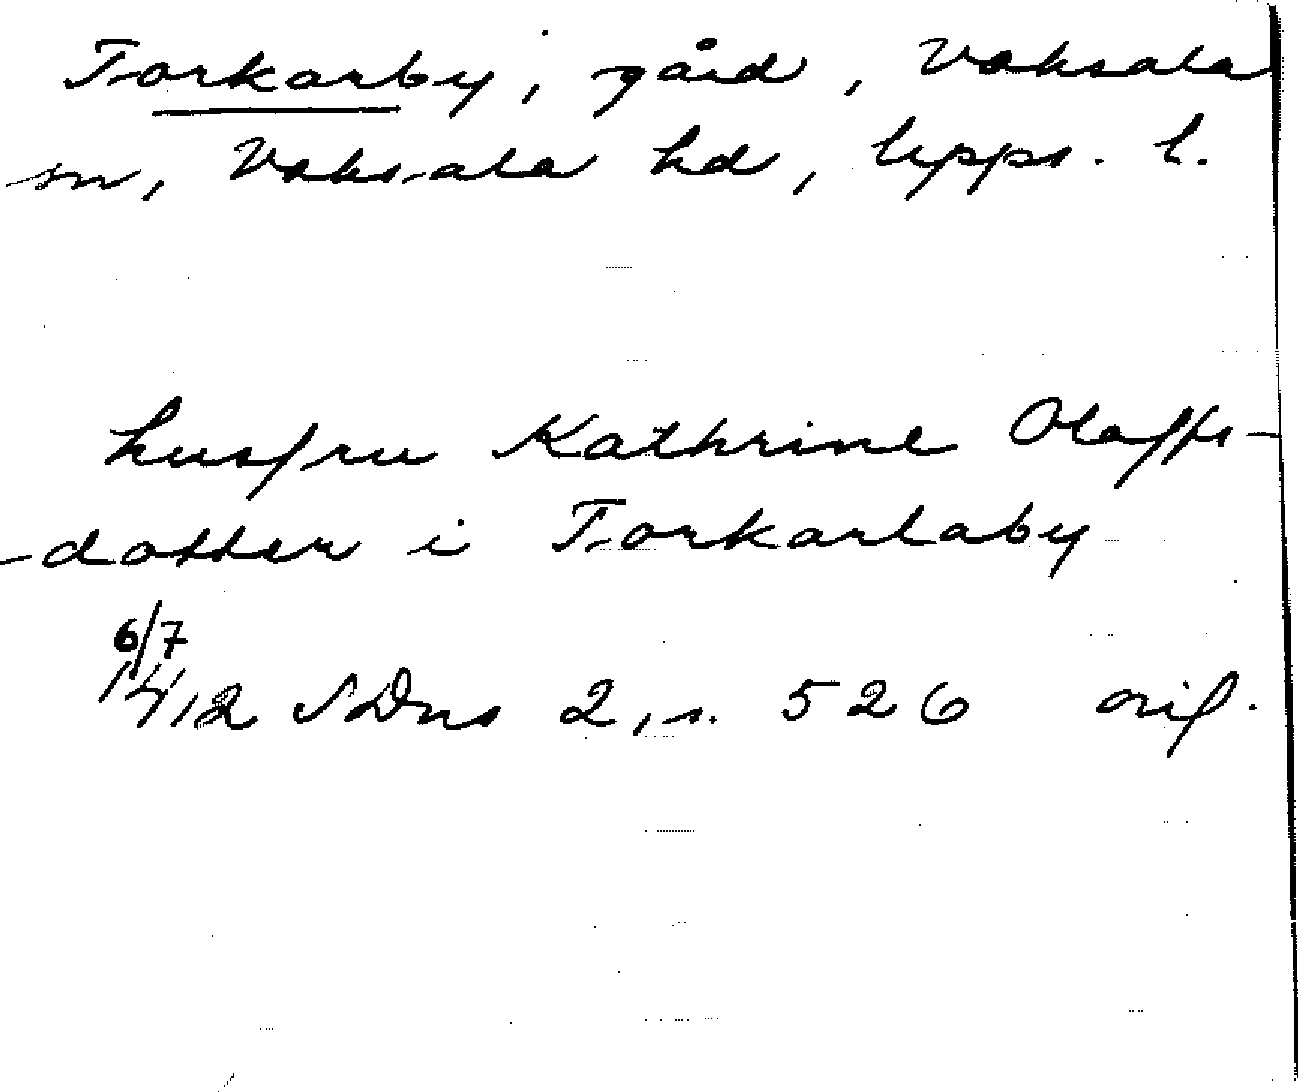 Torkarby, gård, Vaksala
sn, Vaksala hd, Upps. l.
husfru Kathrine Olaffs-
dotter i Torkarlaby
6/7
1412 SDns 2, s. 526 orig.